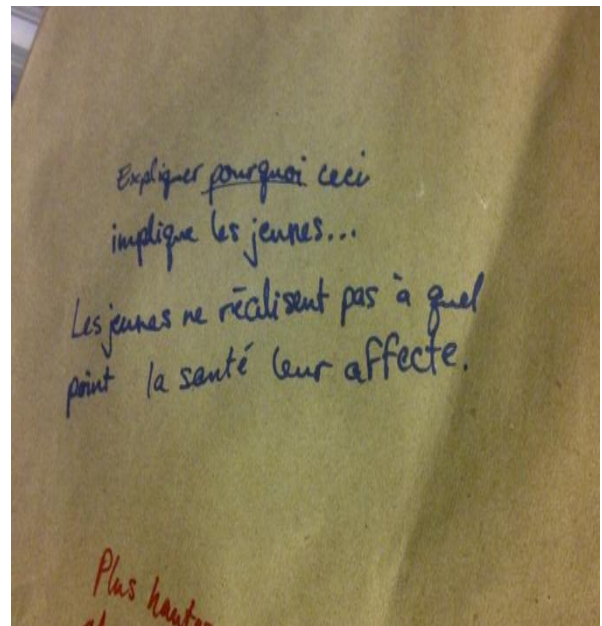 Expliquer pourquoi ceci
implique les jeunes...
Les jeunes ne réalisent pas à quel
point la santé leur affecte.
Plus